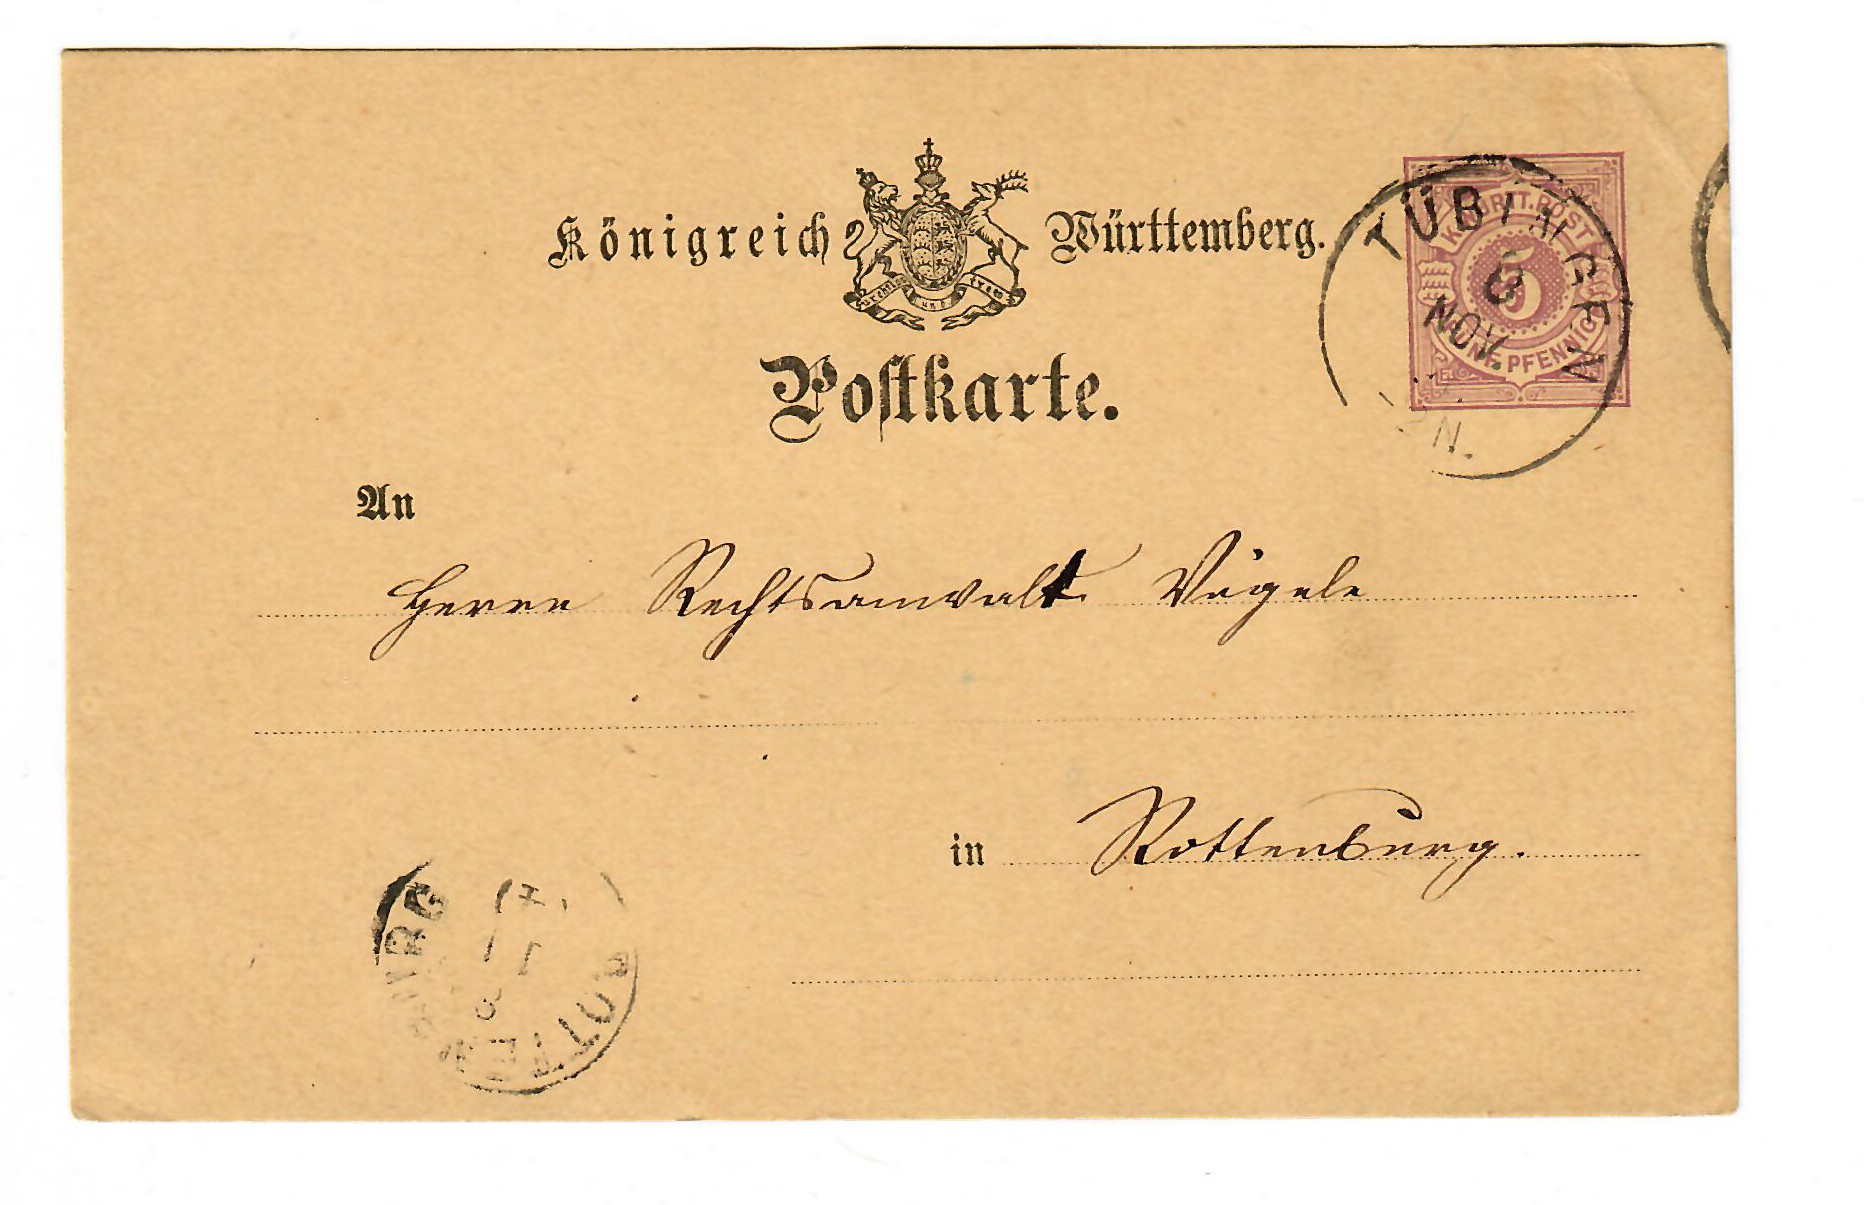 Königreich Württemberg.
furchtlos und trew
Postkarte.
K. WÜRTT. POST
5
FÜNF PFENNIG
TÜBINGEN
8
NOV.
An
Herrn Rechtsanwalt Vögele
in Rottenburg.
ROTTENBURG